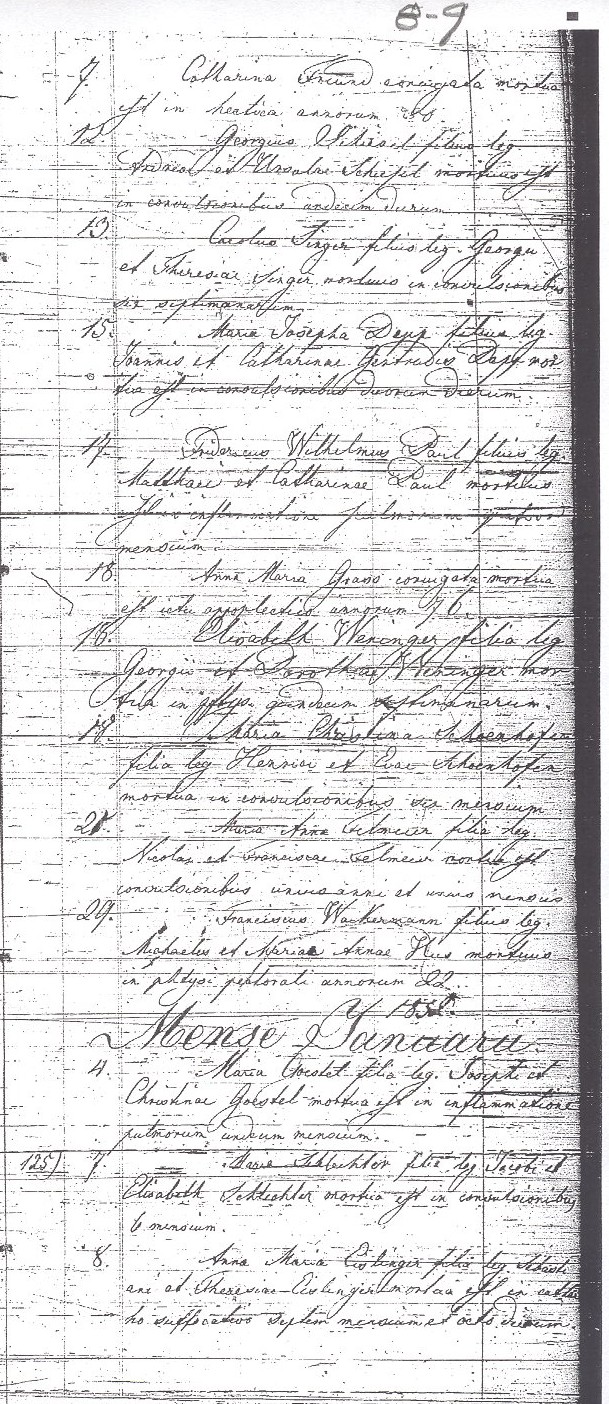 6-9
7. Catharina conjugata mortua
est in hectica annorum
12 Georgius filius leg
Andreae et Ursulae Schiesil mortuus est
in convulsionibus undecim dierum
13. Carolus Singer filius leg. Georgii
et Theresiae Singer mortuus in convulsionibus
sex septimanarum.
15. Maria Josepha Dapp filia leg.
Joannis et Catharinae Gertrudis Dapp mor
tua est in convulsionibus duorum dierum.
17. Fridericus Wilhelmus Paul filius leg.
Matthaei et Catharinae Paul mortuus
est ex inflammatione pulmorum
mensium.
18. Anna Maria Grass conjugata mortua
est ictu apoplectico annorum 76.
18. Elisabeth Weninger filia leg
Georgii et Dorothae Weninger mor
tua in septimanarum.
18. Maria Christina Schoenhofen
filia leg Henrici et Evae Schoenhofen
mortua in convulsionibus sex mensium
Maria Anna filia leg.
Nicolai et Franciscae mortua est
convulsionibus unius anni et unius mensis
29. Franciscus Wackermann filius leg.
Michaelis et Mariae Annae Hus mortuus
in phtysi pectorali annorum 22.
Mense Januarii.
4. Maria Goestel filia leg. Josephi et
Christinae Goestel mortua est in inflammatione
pulmorum mensium.
125) 7. Maria Schlechter filia leg Jacobi et
Elisabeth Schlechter mortua est in convulsionibus
6 mensium.
8. Anna Maria Eislinger filia leg. Sebasti
ani et Theresiae Eislinger mortua est in catha
ro suffocativo septem mensium et octo dierum.